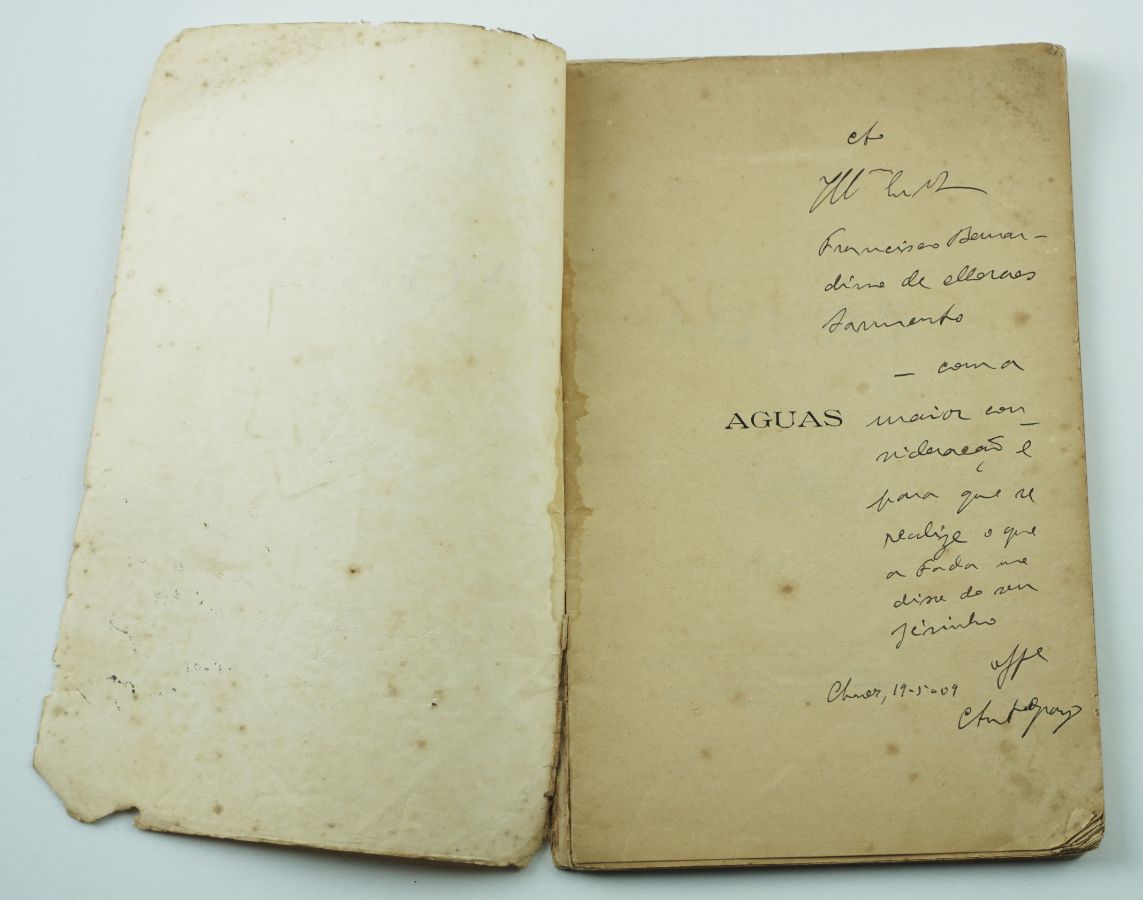 Ao
Francisco Bernar-
dino de Moraes
Sarmento
– com a
AGUAS
maior con-
sideração e
para que se
realize o que
a Fada me
disse do seu
Jésinho
offe
Chaves, 19-5-09